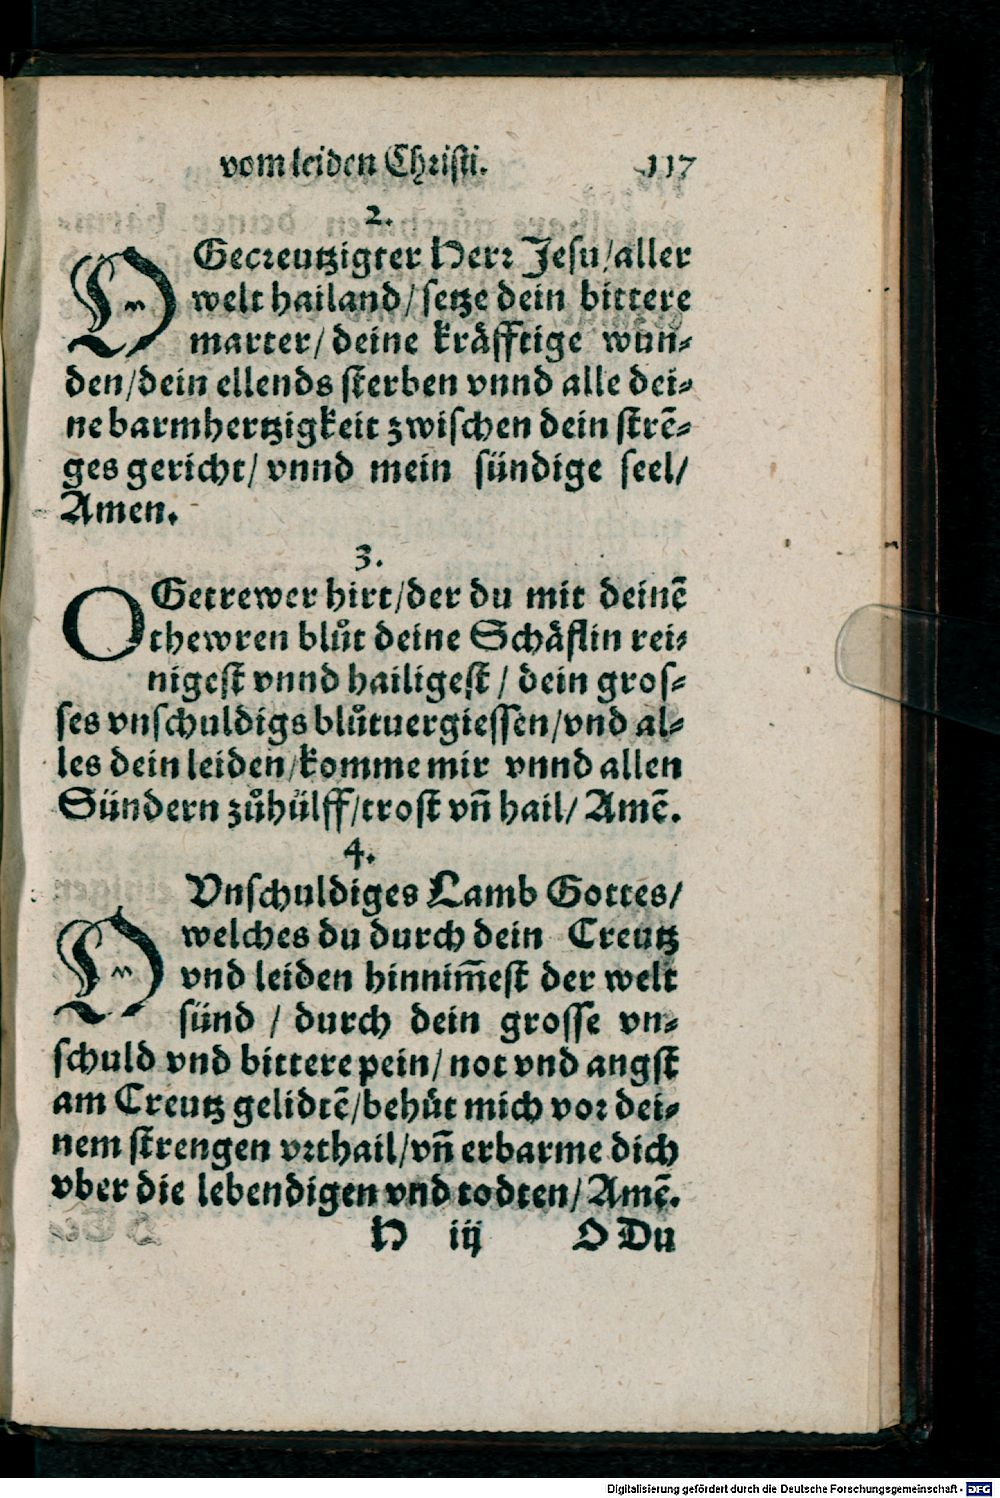 vom leiden Christi. 117
2.
O Gecreutzigter Herr Jesu/aller
welt hailand/setze dein bittere
marter/deine kräfftige wun-
den/dein ellends sterben vnnd alle dei-
ne barmhertzigkeit zwischen dein strē-
ges gericht/ vnnd mein sündige seel/
Amen.
3.
O Getrewer hirt/der du mit deinē
thewren blůt deine Schäflin rei-
nigest vnnd hailigest / dein gros-
ses vnschuldigs blůtuergiessen/vnd al-
les dein leiden/komme mir vnnd allen
Sündern zůhülff/trost vñ hail/ Amē.
4.
O Vnschuldiges Lamb Gottes/
welches du durch dein Creutz
vnd leiden hinnim̄est der welt
sünd / durch dein grosse vn-
schuld vnd bittere pein/ not vnd angst
am Creutz gelidtē/behüt mich vor dei-
nem strengen vrthail/vñ erbarme dich
vber die lebendigen vnd todten/Amē.
H iij O Du
Digitalisierung gefördert durch die Deutsche Forschungsgemeinschaft - DFG